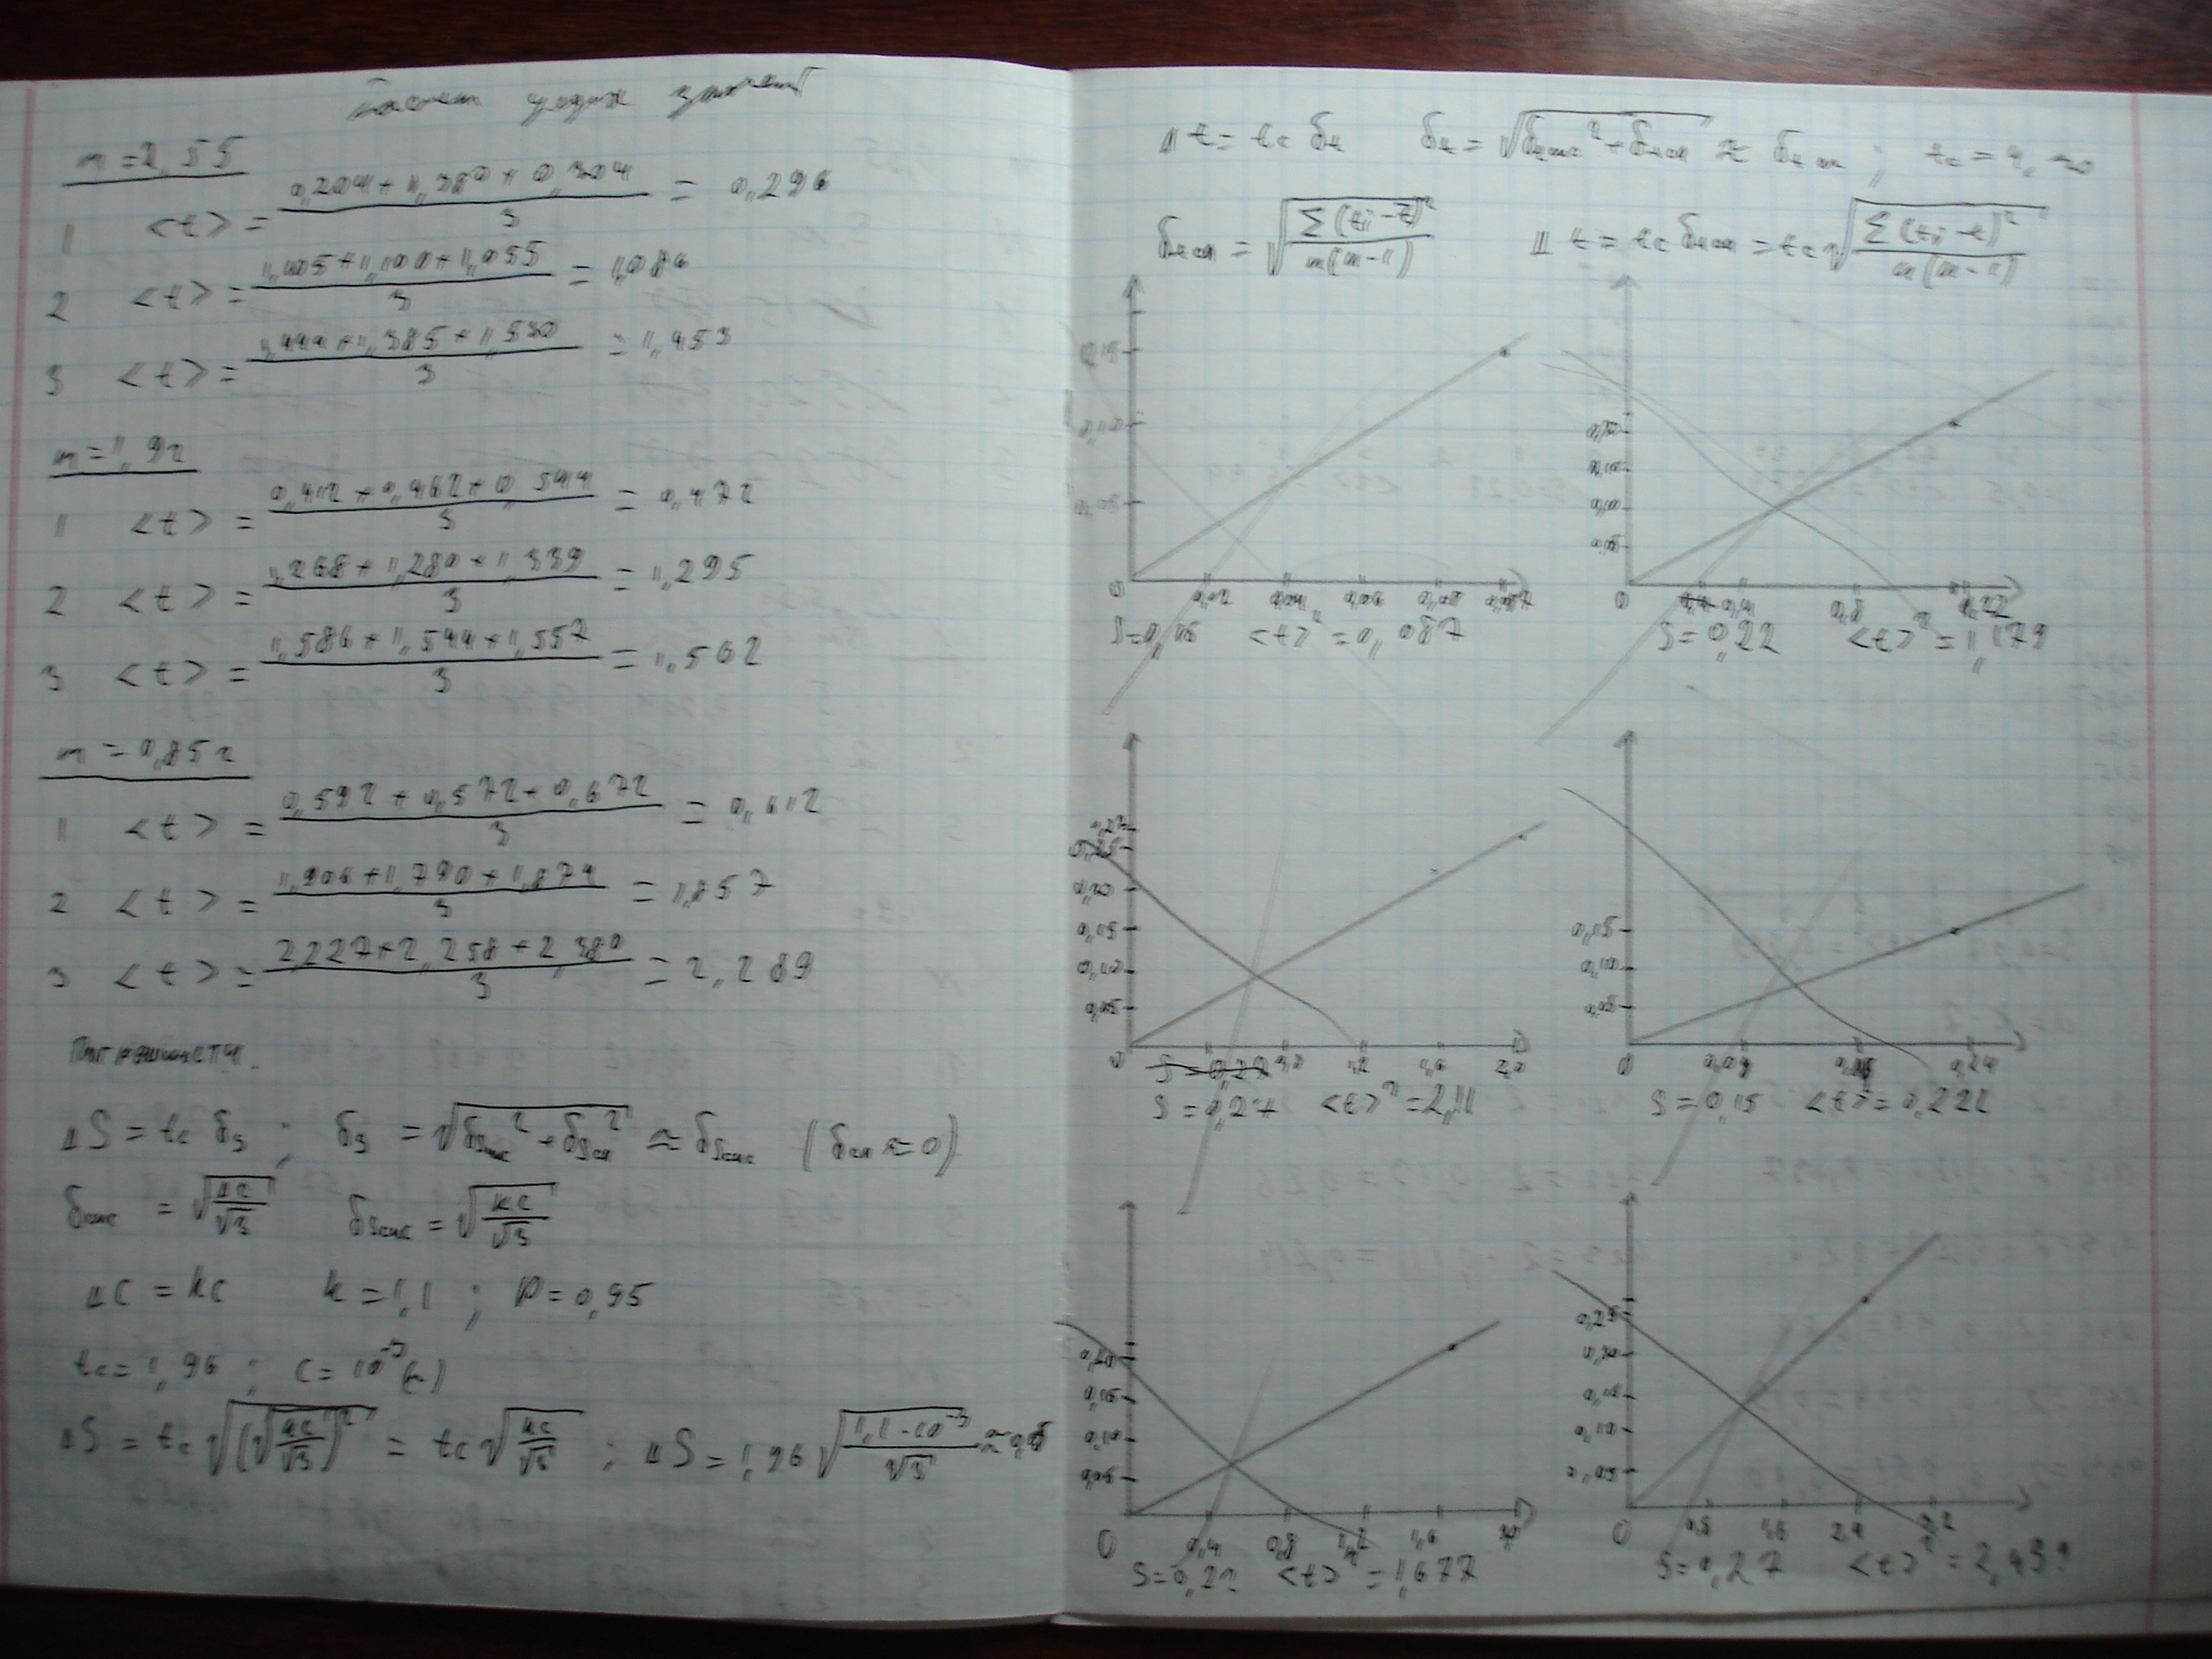 m = 2,55
1 <t> = (0,204 + 1,380 + 0,304)/3 = 0,296
2 <t> = (1,105 + 1,100 + 1,055)/3 = 1,086
3 <t> = (1,444 + 1,385 + 1,530)/3 = 1,453
m = 1,9г
1 <t> = (0,412 + 0,462 + 0,544)/3 = 0,472
2 <t> = (1,268 + 1,280 + 1,339)/3 = 1,295
3 <t> = (1,586 + 1,544 + 1,557)/3 = 1,562
m = 0,85г
1 <t> = (0,592 + 0,572 + 0,672)/3 = 0,612
2 <t> = (1,906 + 1,790 + 1,874)/3 = 1,857
3 <t> = (2,227 + 2,258 + 2,380)/3 = 2,289
Погрешности.
ΔS = tc δs ; δs = √(δsсис² + δsсл²) ≈ δsсис (δсл ≈ 0)
δсис = √(Δc/√3) δsсис = √(kc/√3)
Δc = kc k = 1,1 ; p = 0,95
tc = 1,96 ; c = 10⁻³(м)
ΔS = tc √((√(kc/√3))²) = tc √(kc/√3) ; ΔS = 1,96 √(1,1·10⁻³/√3) ≈
Δt = tc δt δt = √(δtсис² + δtсл) ≈ δtсл ; tc = 4,30
δtсл = √(Σ(ti - t)²/m(m-1)) Δt = tc δtсл = tc √(Σ(ti - t)²/m(m-1))
0,15
0,10
0,05
0 0,02 0,04 0,06 0,08 0,087
S = 0,15 <t>² = 0,087
0,10
0,05
0 0,4 0,8
S = 0,22 <t>² = 1,179
0,27
0,25
0,20
0,15
0,10
0,05
0 1,2 1,6 2,0
S = 0,27
S = 0,27 <t>² = 2,11
0,15
0,10
0,05
0 0,09 0,24
S = 0,15 <t>² = 0,222
0,20
0,15
0,10
0,05
0 0,4 0,8 1,2 1,6
S = 0,22 <t>² = 1,677
0,25
0,20
0,15
0,10
0,05
0 1,6 2,4
S = 0,27 <t>² = 2,439